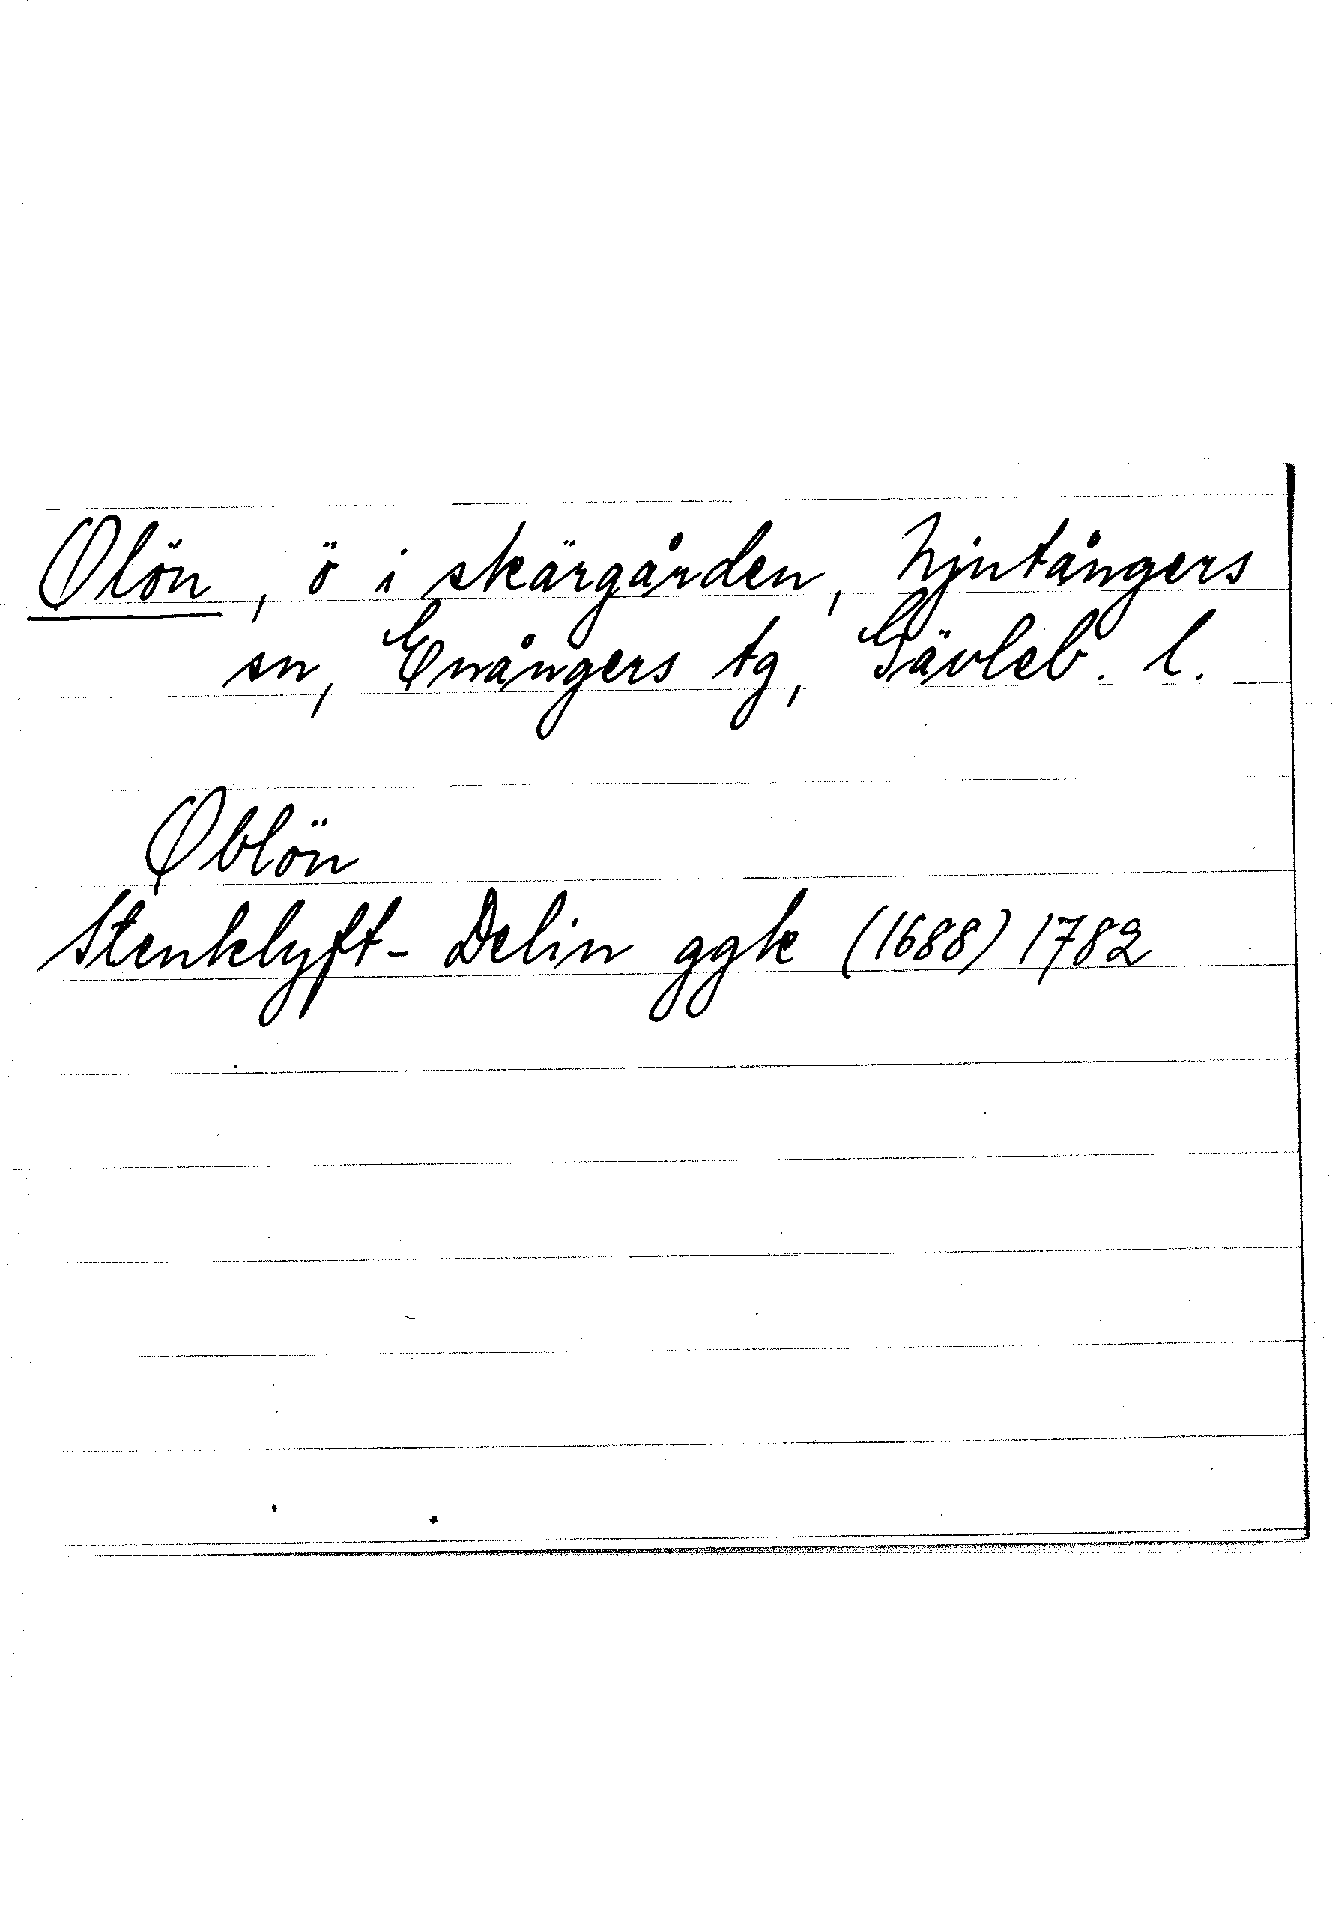 Olön, ö i skärgården, Njutångers
sn, Enångers tg, Gävleb. l.
Oblön
Stenklyft - Delin ggk (1688) 1782